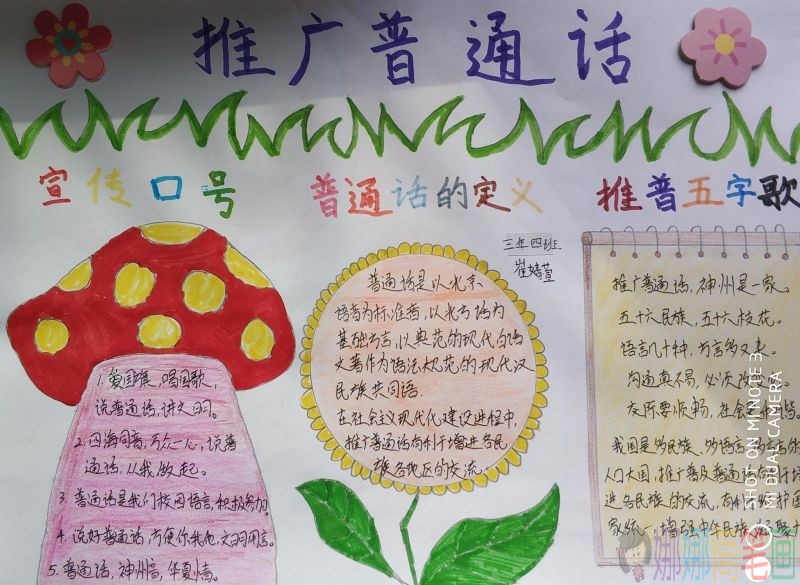 推广普通话
宣传口号
1.爱国旗、唱国歌,
说普通话,讲文明。
2.四海同音,万众一心,说普
通话,从我做起。
3.普通话是我们校园语言,积极参加。
4.说好普通话,方便你我他,文明用言。
5.普通话,神州音,华夏情。
普通话的定义
三年四班
崔婧萱
普通话是以北京
语音为标准音,以北方话为
基础方言,以典范的现代白话
文著作为语法规范的现代汉
民族共同语.
在社会主义现代化建设进程中,
推广普通话有利于增进各民
族各地区的交流。
推普五字歌
推广普通话,神州是一家。
五十六民族,五十六枝花。
语言几十种,方言多又
沟通真不易,必须改变
交际要顺畅,社会
我国是多民族、多语言、多
人口大国,推广普及普通话有利于增
进各民族的交流,有利于维护国
家统一,增强中华民族凝聚力
SHOT ON MI NOTE 3
MI DUAL CAMERA
娜娜
画